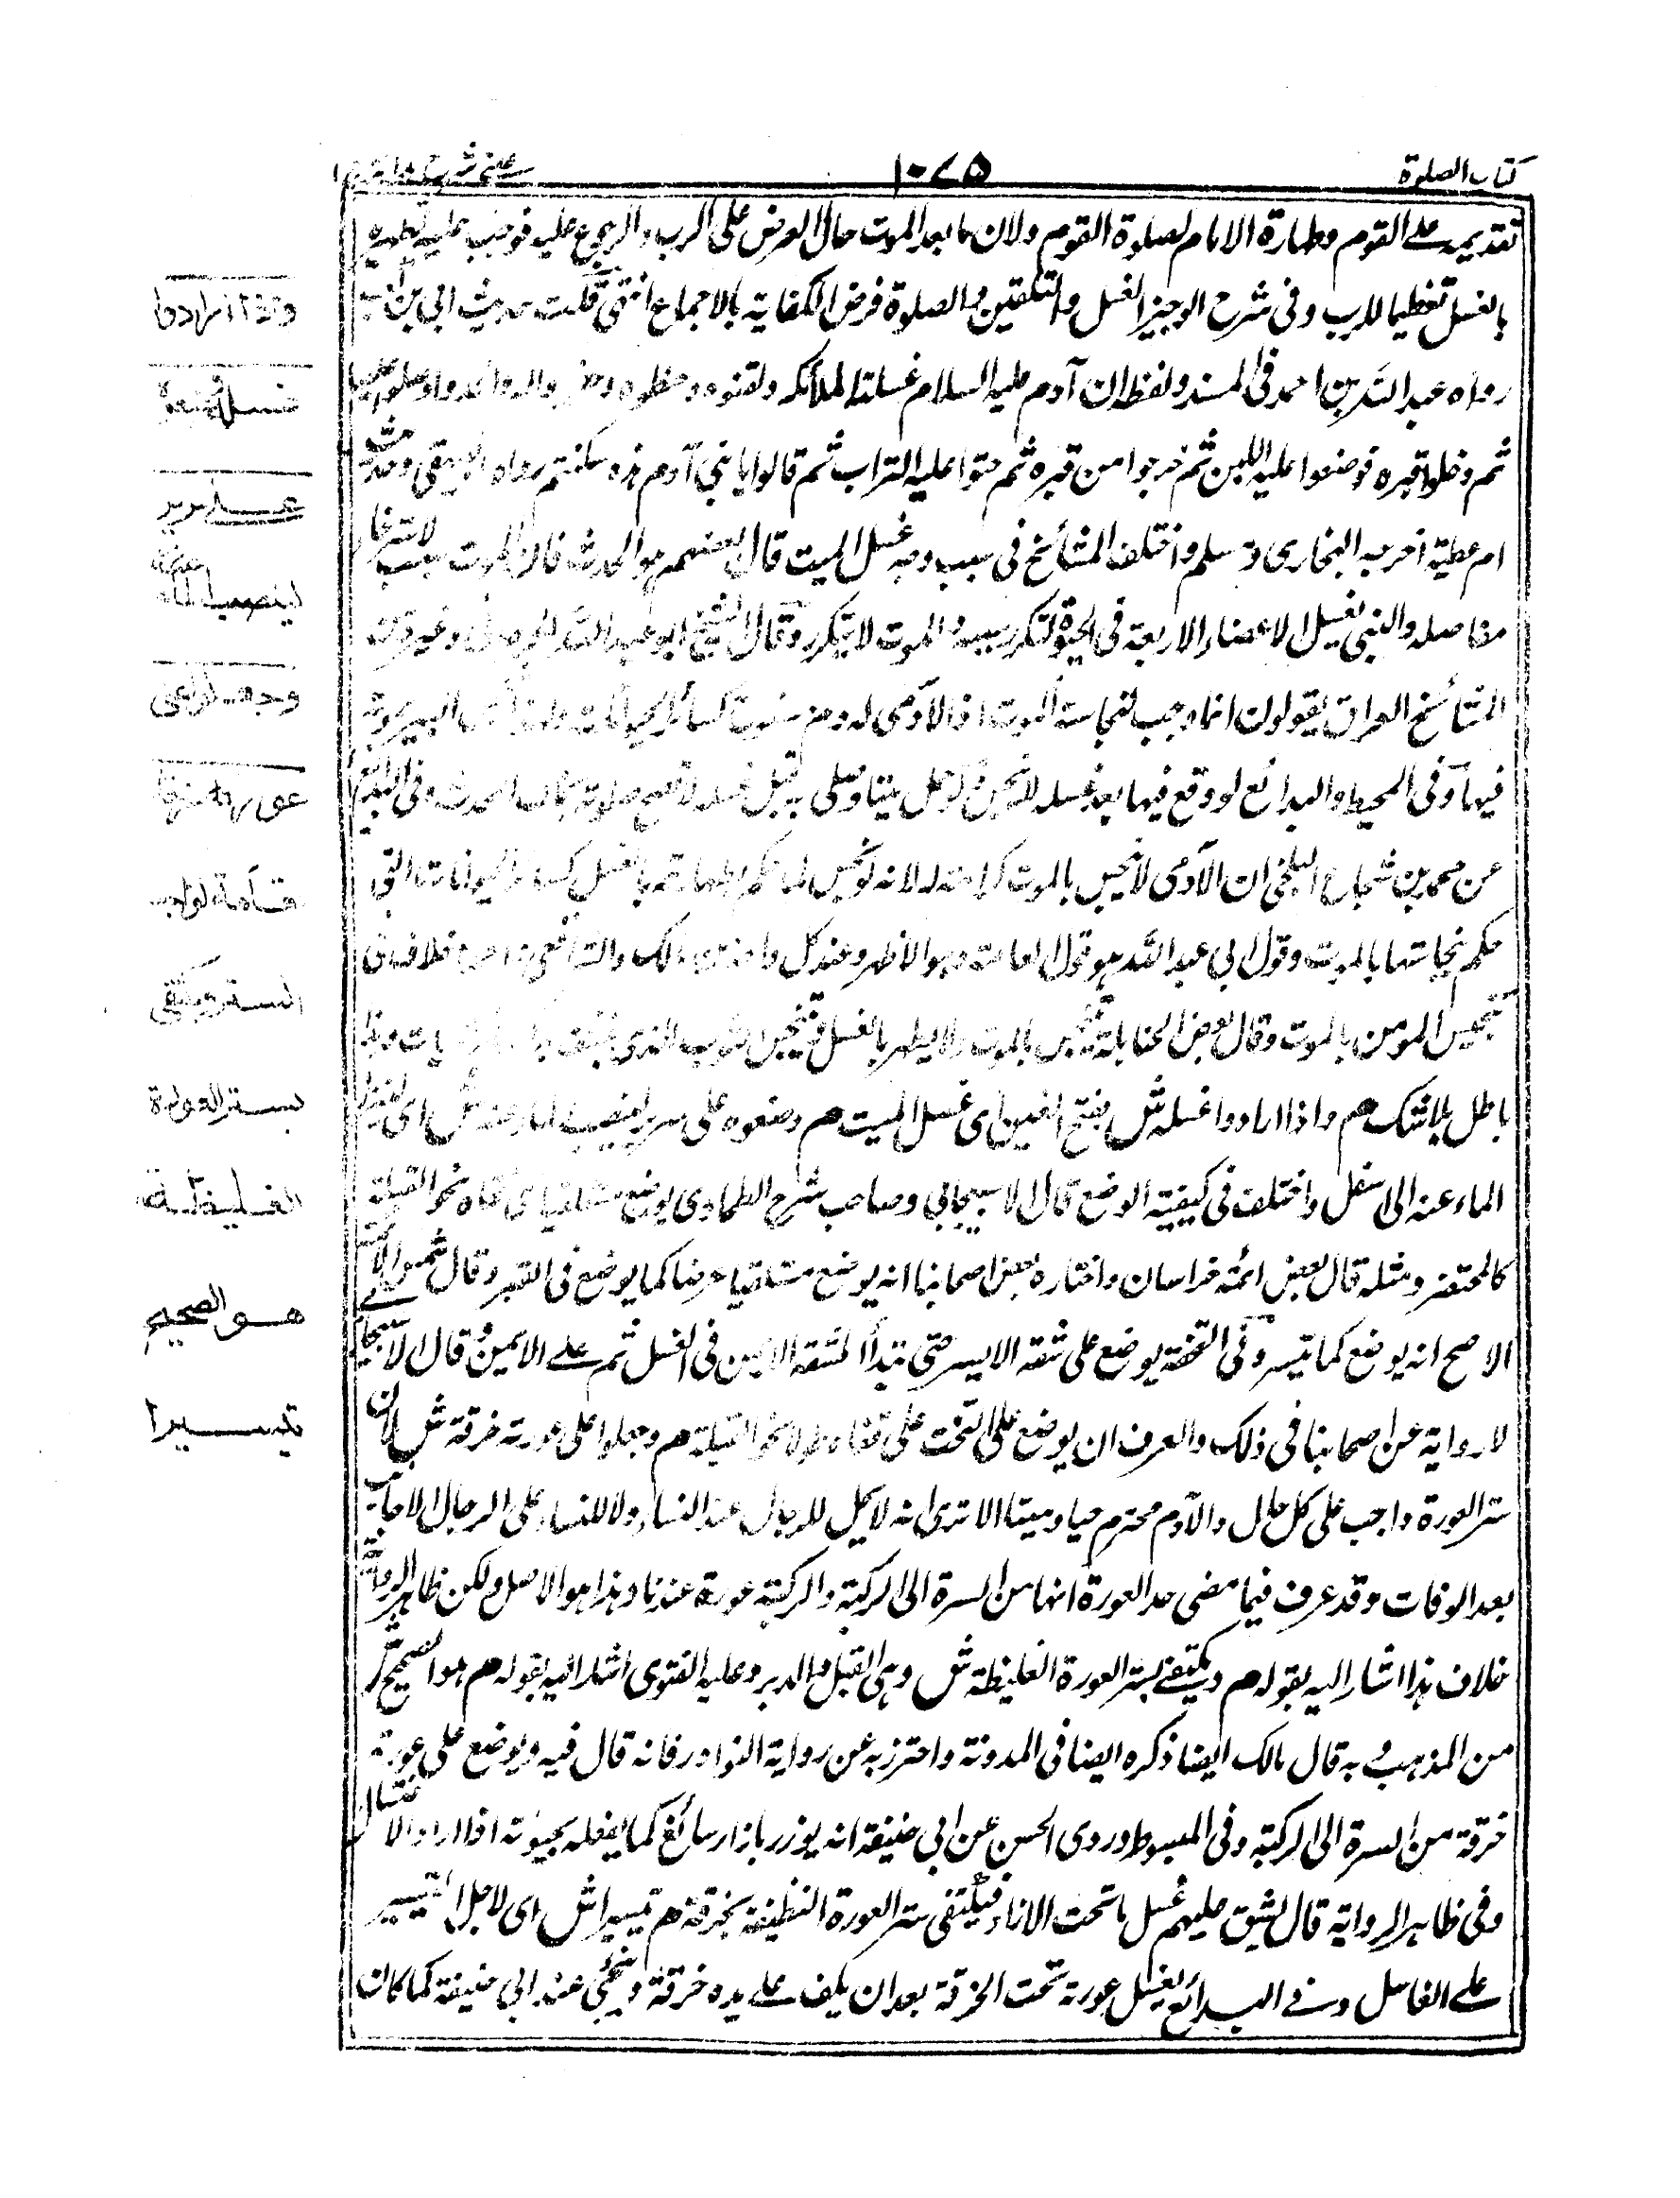 كتاب الصلوة
١٠٧٥
عينى شرح
تقديمه على القوم وطهارة الامام لصلوة القوم ولان ما بعد الموت حال العرض على الرب والرجوع عليه فوجب عليه تطهيره
بالغسل تعظيما للرب وفى شرح الوجيز الغسل والتكفين والصلوة فرض الكفاية بالاجماع انتهى قلت حديث ابى بن
رواه عبد الله بن احمد فى المسند ولفظه ان آدم عليه السلام غسلته الملائكه وكفنوه وحنطوه والحدوا وصلوا عليه
ثم دخلوا قبره فوضعوا عليه اللبن ثم خرجوا من قبره ثم حثوا عليه التراب ثم قالوا يا بنى آدم هذه سنتكم رواه البيهقى وحديث
ام عطية اخرجه البخارى ومسلم واختلف المشائخ فى سبب وجه غسل الميت قال بعضهم هو الحدث فان الموت سبب لاسترخا
مفاصله والنبى بغسل الاعضاء الاربعة فى الحيوة لتكرر سببه والموت لا يتكرر وقال الشيخ ابو عبد الله الجرجانى وغيره من
المشائخ العراق يقولون انما وجب لنجاسة الموت اذ الآدمى له دم كسائر الحيوانات البير بموته
فيها وفى المحيط والبدائع لو وقع فيها بعد غسله لا تنجس ولو حمل ميتا وصلى به قبل غسله لا تصح صلوته بخلاف المحدث وفى البدائع
عن محمد بن شجاع البلخى ان الآدمى لا ينجس بالموت كرامة له لانه لو نجس لما حكم بطهارته بالغسل كسائر الحيوانات التى
حكم بنجاستها بالموت وقول ابى عبد الله هو قول العامة وهو الاظهر وعند مالك والشافعى خلاف فى
تنجيس المومن بالموت وقال بعض الحنابلة ينجس بالموت ولا يطهر بالغسل وينجس الثوب الذى ينشف به وهذا
باطل بلا شك هم واذا ارادوا غسله ش بفتح الغين اى غسل الميت هم وضعوه على سرير لينصب الماء عنه ش اى لينزل
الماء عنه الى اسفل واختلف فى كيفية الوضع قال الاسبيجابى وصاحب شرح الطحاوى يوضع مستلقيا نحو القبلة
كالمحتضر ومثله قال بعض ائمة خراسان واختاره بعض اصحابنا انه يوضع مستلقيا عرضا كما يوضع فى القبر وقال شمس الائمة
الاصح انه يوضع كما تيسر وفى التحفة يوضع على شقه الايسر حتى تبدأ بشقه الايمن فى الغسل ثم على الايمن قال الاسبيجابى
لا رواية عن اصحابنا فى ذلك والعرف ان يوضع على التخت على قفاه طولا نحو القبلة هم وجعلوا على عورته خرقة ش لان
ستر العورة واجب على كل حال والآدم محترم حيا وميتا الا ترى انه لا يحل للرجال غسل النساء ولا للنساء على الرجال الاجانب
بعد الوفات وقد عرف فيما مضى حد العورة انها من السرة الى الركبة والركبة عورة عندنا وهذا هو الاصل ولكن ظاهر الرواية
خلاف هذا اشار اليه بقوله هم ويكتفى بستر العورة الغليظة ش وهى القبل والدبر وعليه الفتوى اشار اليه بقوله هم هو الصحيح ش
من المذهب وبه قال مالك ايضا ذكره ايضا فى المدونة واحترز به عن رواية النوادر فانه قال فيه ويوضع على عورته
خرقة من السرة الى الركبة وفى المبسوط وروى الحسن عن ابى حنيفة انه يوزر بازار سابغ كما يفعله بحيوته اذا اراد الاغتسال
وفى ظاهر الرواية قال يشق عليهم غسل ما تحت الازار فيكتفى ستر العورة الغليظة بخرقة هم تيسيرا ش اى لاجل التيسير
على الغاسل وفى البدائع يغسل عورته تحت الخرقة بعد ان يلف على يده خرقة وينجى عند ابى حنيفة كما كان
واذا ارادوا
غسله وضعوه
على سرير
لينصب الماء عنه
وجعلوا على
عورته خرقة
اقامة لواجب
الستر ويكتفى
بستر العورة
الغليظة
هو الصحيح
تيسيرا